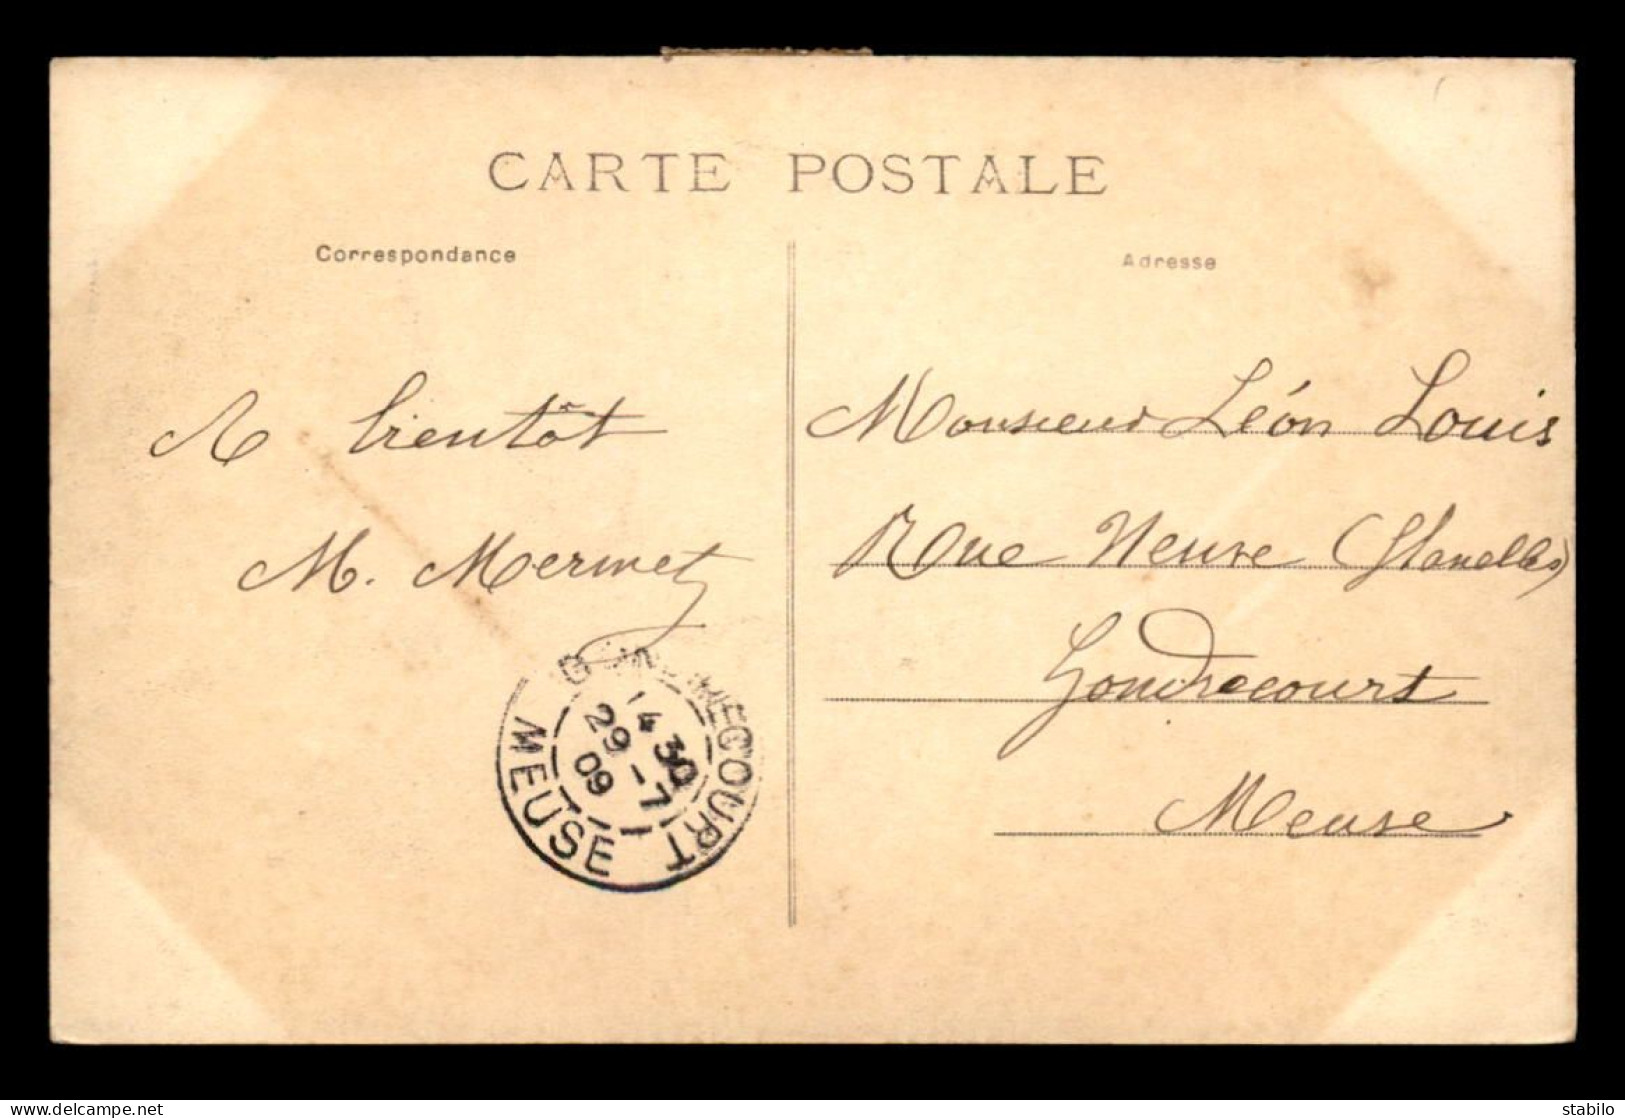 CARTE POSTALE
Correspondance
Adresse
A bientôt
M. Mermet
Monsieur Léon Louis
Rue Neuve
Gondrecourt
Meuse
14 30
29 - 7
09
MEUSE
www.delcampe.net
stabilo